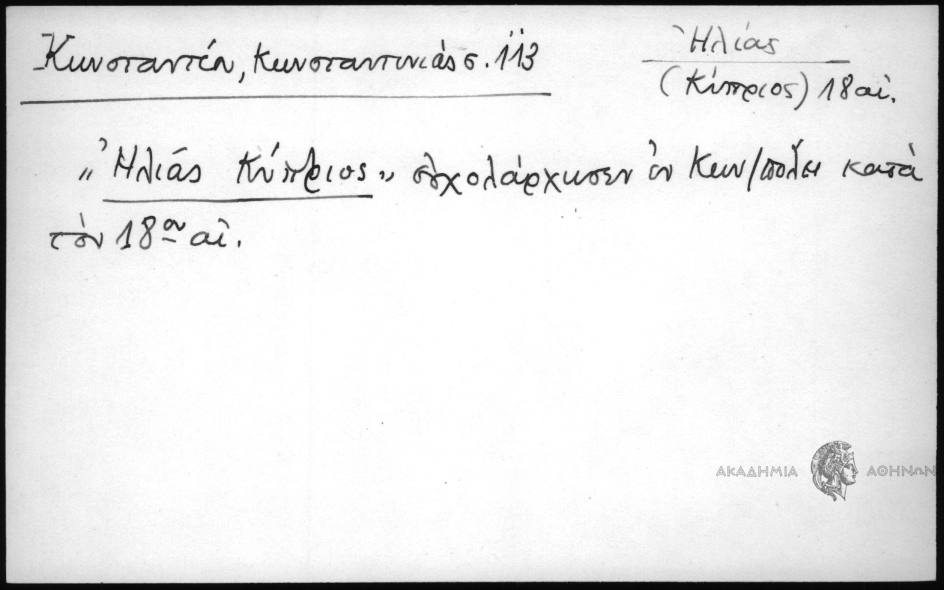 Κωνσταντίν, Κωνσταντινιάς σ. 113
Ἠλίας
(Κύπριος) 18 αἰ.
„Ἠλιάς Κύπριος„ ἐσχολάρχησεν ἐν Κων/πόλει κατὰ
τὸν 18ον αἰ.
ΑΚΑΔΗΜΙΑ ΑΘΗΝΩΝ